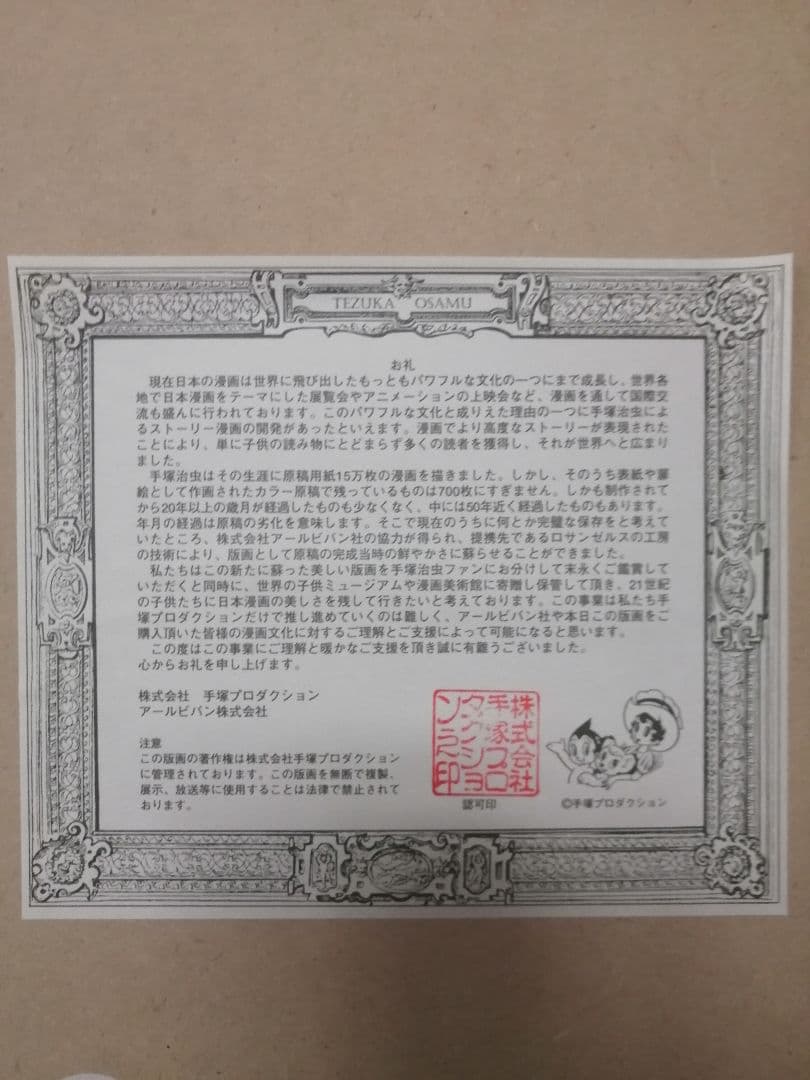 TEZUKA OSAMU
お礼
現在日本の漫画は世界に飛び出したもっともパワフルな文化の一つにまで成長し、世界各
地で日本漫画をテーマにした展覧会やアニメーションの上映会など、漫画を通して国際交
流も盛んに行われております。このパワフルな文化と成りえた理由の一つに手塚治虫によ
るストーリー漫画の開発があったといえます。漫画でより高度なストーリーが表現された
ことにより、単に子供の読み物にとどまらず多くの読者を獲得し、それが世界へと広まり
ました。
手塚治虫はその生涯に原稿用紙15万枚の漫画を描きました。しかし、そのうち表紙や扉
絵として作画されたカラー原稿で残っているものは700枚にすぎません。しかも制作されて
から20年以上の歳月が経過したものも少なくなく、中には50年近く経過したものもあります。
年月の経過は原稿の劣化を意味します。そこで現在のうちに何とか完璧な保存をと考えて
いたところ、株式会社アールビバン社の協力が得られ、提携先であるロサンゼルスの工房
の技術により、版画として原稿の完成当時の鮮やかさに蘇らせることができました。
私たちはこの新たに蘇った美しい版画を手塚治虫ファンにお分けして末永くご鑑賞して
いただくと同時に、世界の子供ミュージアムや漫画美術館に寄贈し保管して頂き、21世紀
の子供たちに日本漫画の美しさを残して行きたいと考えております。この事業は私たち手
塚プロダクションだけで推し進めていくのは難しく、アールビバン社や本日この版画をご
購入頂いた皆様の漫画文化に対するご理解とご支援によって可能になると思います。
この度はこの事業にご理解と暖かなご支援を頂き誠に有難うございました。
心からお礼を申し上げます。
株式会社 手塚プロダクション
アールビバン株式会社
注意
この版画の著作権は株式会社手塚プロダクション
に管理されております。この版画を無断で複製、
展示、放送等に使用することは法律で禁止されて
おります。
株式会社
手塚プロ
ダクショ
ン之印
認可印
©手塚プロダクション